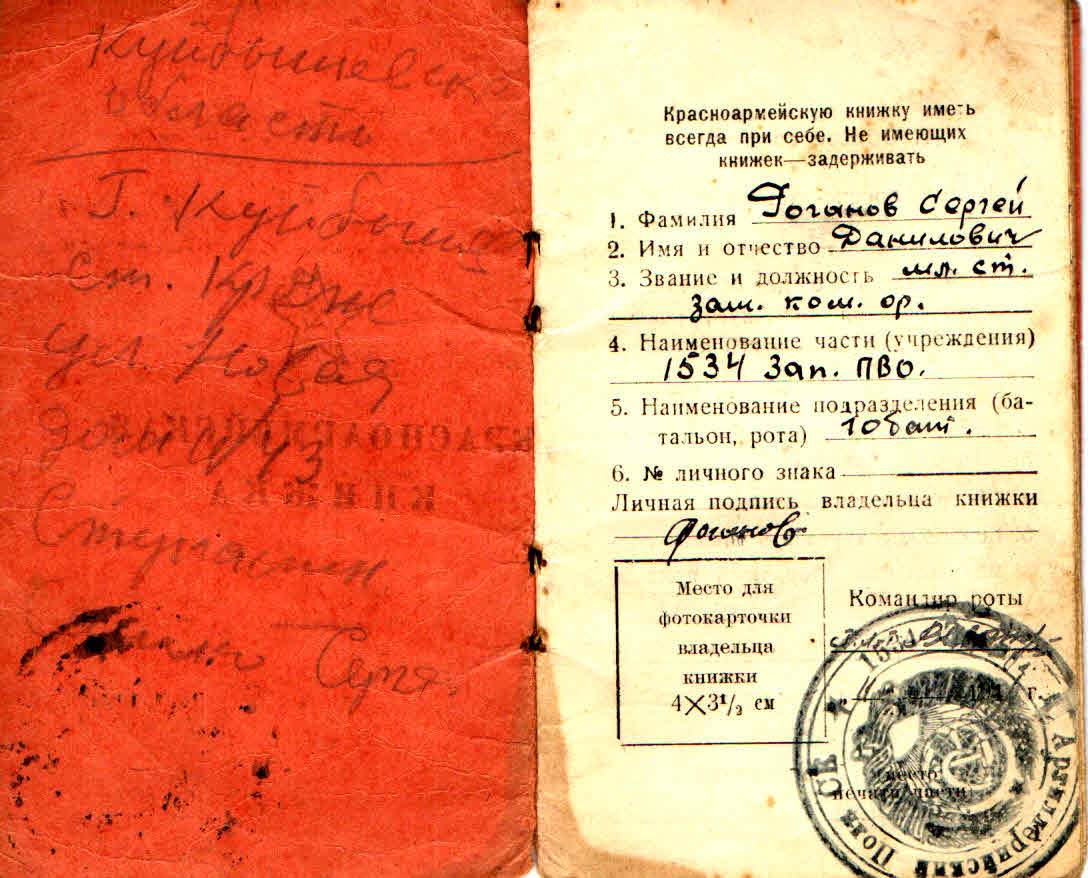 Куйбышевская
область
г. Куйбышев
ст. Кряж
ул. Новая
дом № 43
Ступакин
Серг.
КРАСНОАРМЕЙСКАЯ
КНИЖКА
Красноармейскую книжку иметь
всегда при себе. Не имеющих
книжек—задерживать
1. Фамилия Доганов Сергей
2. Имя и отчество Данилович
3. Звание и должность мл. ст.
зам. ком. ор.
4. Наименование части (учреждения)
1534 Зап. ПВО.
5. Наименование подразделения (ба-
тальон, рота) 1 обат.
6. № личного знака
Личная подпись владельца книжки
Доганов
Место для
фотокарточки
владельца
книжки
4×3½ см
Командир роты
г.
место
печати части
Артиллерийский Полк